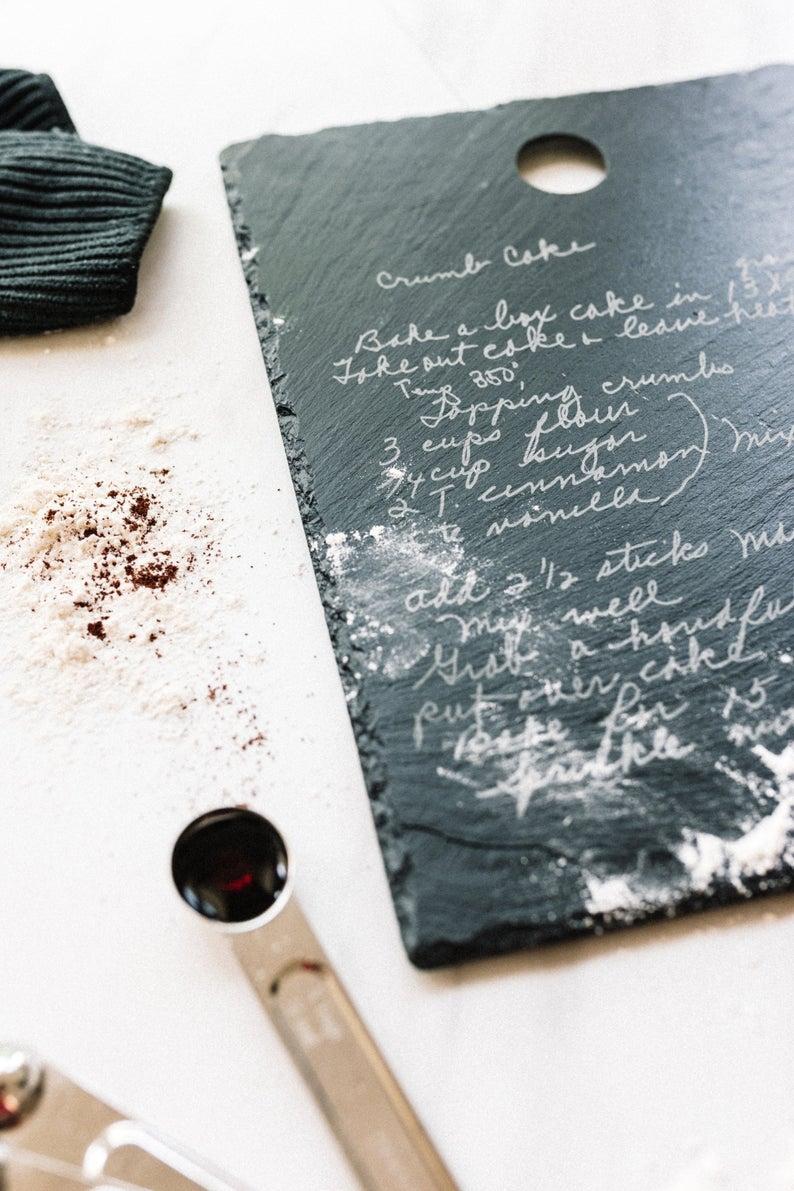 Crumb Cake
Bake a box cake in 13 x
Take out cake & leave heat
Temp 350°
Topping crumbs
3 cups flour
1/4 cup sugar
2 T. cinnamon) mix
vanilla
add 2 1/2 sticks
mix well
Grab a handful
put over cake
Bake for 15
Sprinkle